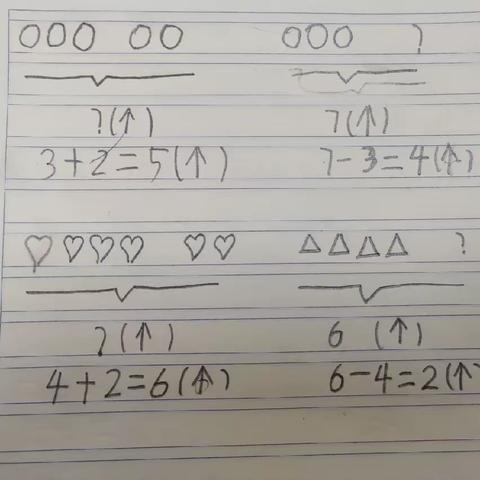 ○○○ ○○ ○○○ ?
?(个) 7(个)
3+2=5(个) 7-3=4(个)
♡♡♡♡ ♡♡ △△△△ ?
?(个) 6(个)
4+2=6(个) 6-4=2(个)